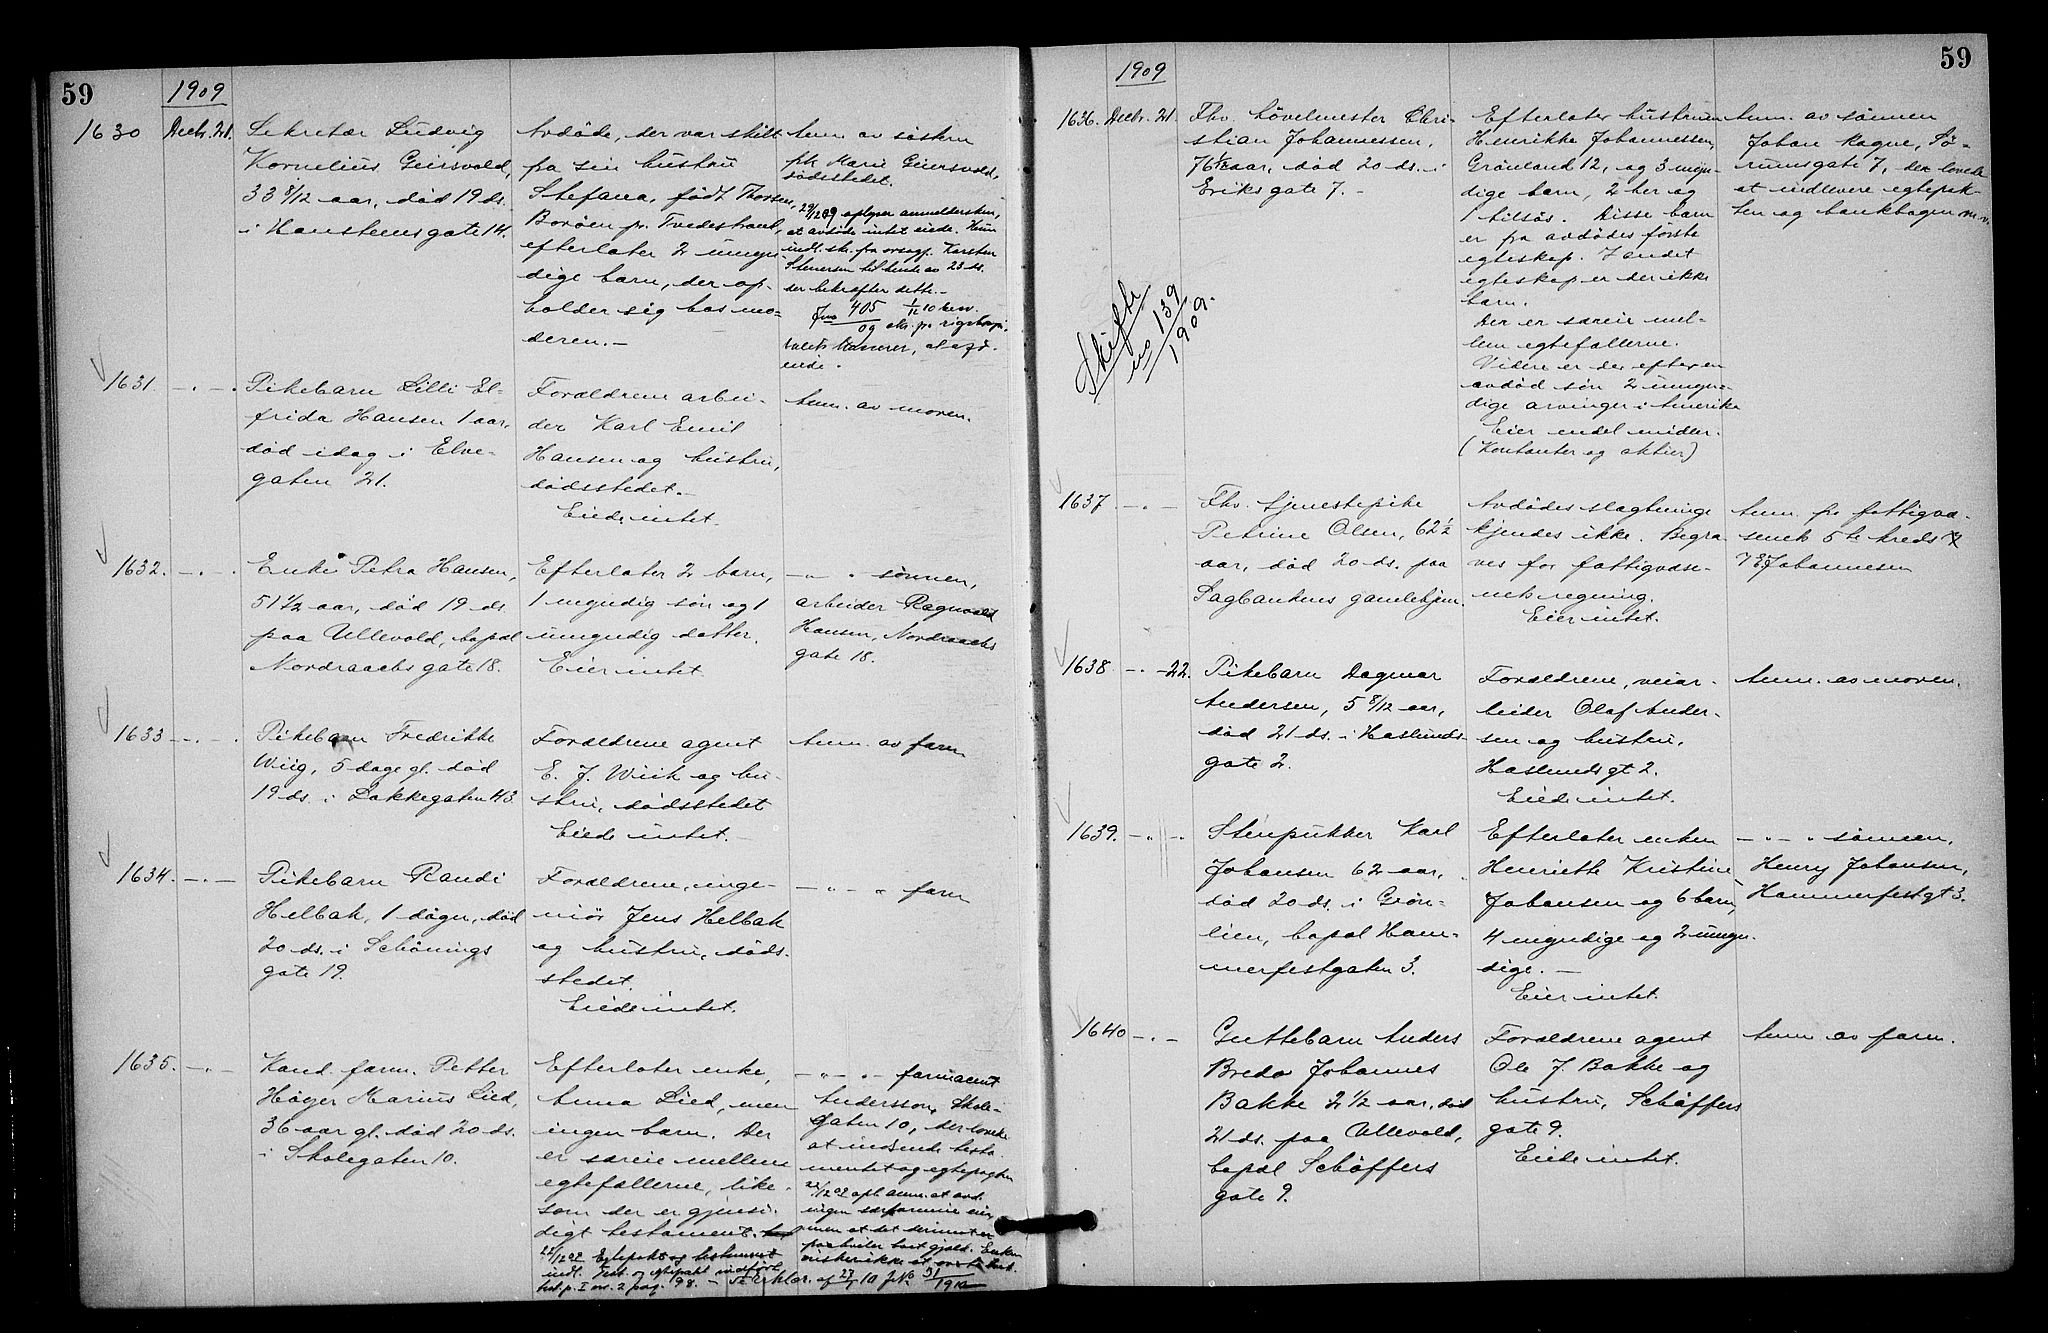 59
1909
1630 Decbr. 21.
Sekretær Ludvig
Kornelius Geirsvold,
33 8/12 aar, død 19 ds.
i Hansteensgate 14.
Avdøde, der var skilt
fra sin hustru
Stefana, født Thorsen,
Borøen pr. Tvedestrand,
efterlater 2 umyn-
dige barn, der op-
holder sig hos mo-
deren.-
Anm. av søsteren
frk Marie Geiersvold,
dødsstedet.
29/12 09 oplyser anmeldersken,
at avdøde intet eiede. Hun
indl. skr. fra orsagf. Karsten
av 23 ds.
der bekræfter dette.-
Jno 405/09
eiede.
1631. -"-
Pikebarn Lilli El-
frida Hansen 1 aar,
død idag i Elve-
gaten 21.
Forældrene arbei-
der Karl Emil
Hansen og hustru,
dødsstedet.-
Eiede intet.
Anm. av moren.
1632. -"-
Enke Petra Hansen,
51 1/2 aar, død 19 ds
paa Ullevold, bopæl
Nordraachs gate 18.
Efterlater 2 barn,
1 myndig søn og 1
umyndig datter.
Eier intet
-"- sønnen,
arbeider Ragnvald
Hansen, Nordraachs
gate 18.
1633 -"-
Pikebarn Fredrikke
Wiig, 5 dage gl. død
19 ds. i Lakkegaten 43.
Forældrene agent
E. J. Wiik og hu-
stru, dødsstedet
Eiede intet.-
Anm. av faren
1634. -"-
Pikebarn Randi
Helbak, 1 døgn, død
20 ds. i Schønings
gate 19.
Forældrene, inge-
niør Jens Helbak
og hustru, døds-
stedet.
Eiede intet.
-"- faren
1635. -"-
Kand. farm. Petter
Høyer Marius Lied,
36 aar gl. død 20 ds.
i Skolegaten 10.
Efterlater enke,
Anna Lied, men
ingen barn. Der
er særeie mellem
egtefællerne, like-
som der er gjensi-
digt testament.
22/12 09 Egtepakt og testament
indl. Test. og egtepakt indført
-"- farmaceut
Andersson, Skole-
gaten 10, der lovede
at indsende testa-
mentet og egtepagten
22/12 09 opl. anm. at avd.
ingen særformue eier,
men at det derimot
paahviler bort gjæld. Enken
59
1909
1636. Decbr. 21.
Fhv. høvelmester Chri-
stian Johannessen,
76 1/2 aar, død 20 ds. i
Eriks gate 7.-
Skifte
no 139/1909.
Efterlater hustruen
Henrikke Johannessen,
Grønland 12, og 3 myn-
dige barn, 2 her og
1 tilsjøs. Disse barn
er fra avdødes første
egteskap. I andet
egteskap er der ikke
barn.
Der er særeie mel-
lem egtefællerne.
Videre er der efter en
avdød søn 2 umyn-
dige arvinger i Amerika
Eier endel midler.
(Kontanter og aktier)
Anm. av sønnen
Johan Ragne, Sø-
rumsgate 7, der lovede
at indlevere egtepak-
ten og bankbogen m.v.
1637. -"-
Fhv. tjenestepike
Petrine Olsen, 62 1/2
aar, død 20 ds. paa
Sagbankens gamlehjem.
Avdødes slægtninge
kjendes ikke. Begra-
ves for fattigvæse-
nets regning.
Eier intet.
Anm. fra fattigvæ-
senets 5te kreds
Johannesen
1638. -"- 22.
Pikebarn Dagmar
Andersen, 5 8/12 aar,
død 21 ds. i Haslunds
gate 2.
Forældrene, veiar-
beider Olaf Ander-
sen og hustru,
Haslunds gt 2.
Eiede intet.
Anm. av moren.
1639. -"-
Stenpukker Karl
Johansen 62 aar,
død 20 ds. i Grøn-
lien, bopæl Ham-
merfestgaten 3.
Efterlater enken
Henriette Kristine
Johansen og 6 barn,
4 myndige og 2 umyn-
dige.-
Eier intet.
-"- sønnen,
Henry Johansen,
Hammerfestgt 3.
1640 -"-
Guttebarn Anders
Bredo Johannes
Bakke 2 1/2 aar, død
21 ds. paa Ullevold,
bopæl Schøffers
gate 9.
Forældrene agent
Ole J. Bakke og
hustru, Schøffers
gate 9.
Eiede intet.
Anm. av faren.